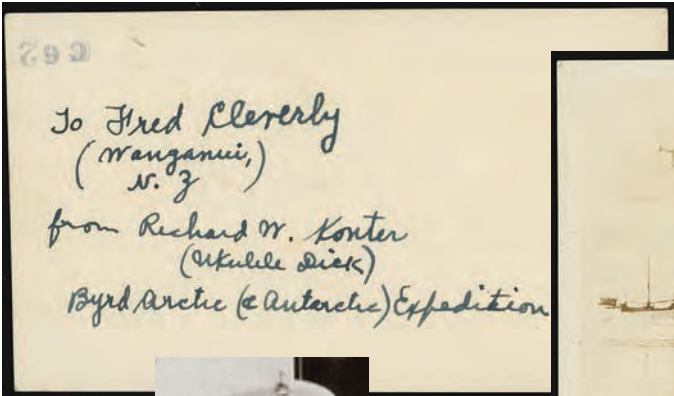 To Fred Cleverly
(Wanganui,)
N. Z
from Richard W. Konter
(Ukulele Dick)
Byrd Arctic (& Antarctic) Expedition